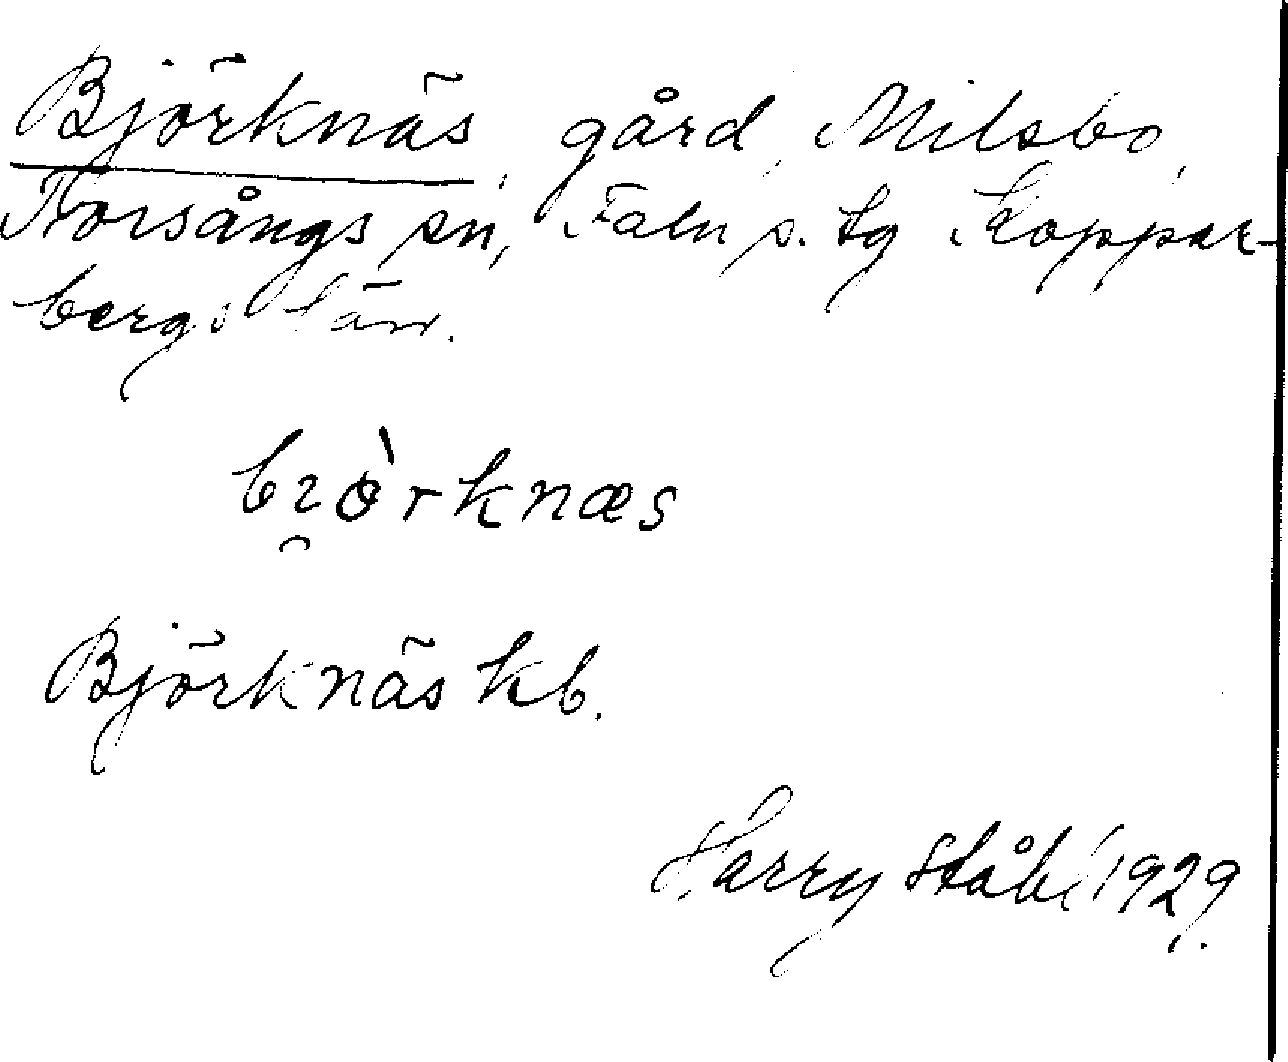 Björknäs, gård, Milsbo,
Torsångs sn, Falu s. tg Koppar-
bergs län.
bi̯ὸrknæs
Björknäs kb.
Harry Ståhl 1929.